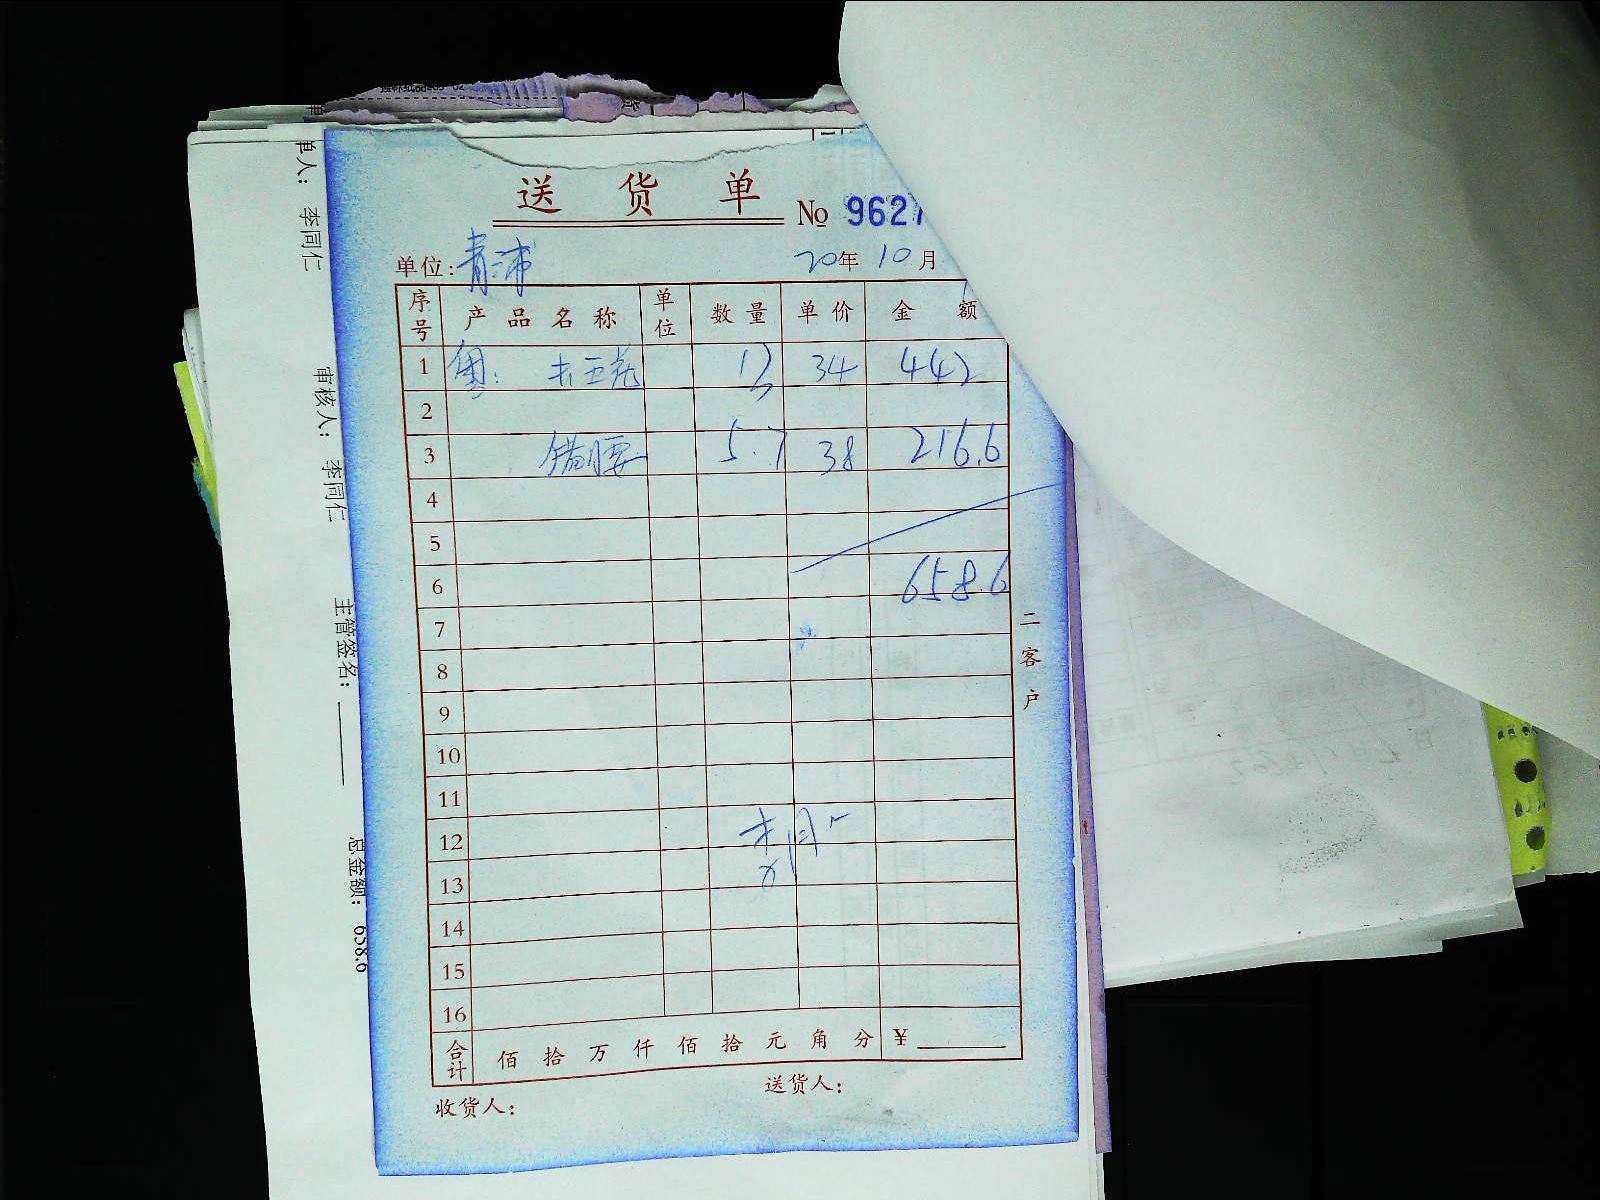 送货单
No 9627
单位: 青浦
20年 10月
序号 产品名称 单位 数量 单价 金额
1 13 34 442
2
3 猪腰 5.7 38 216.6
4
5
6 658.6
7
8
9
10
11
12
13
14
15
16
合计 佰拾万仟佰拾元角分 ¥
送货人:
收货人:
二客户
单人: 李同仁
审核人: 李同仁
主管签名:
总金额: 658.6